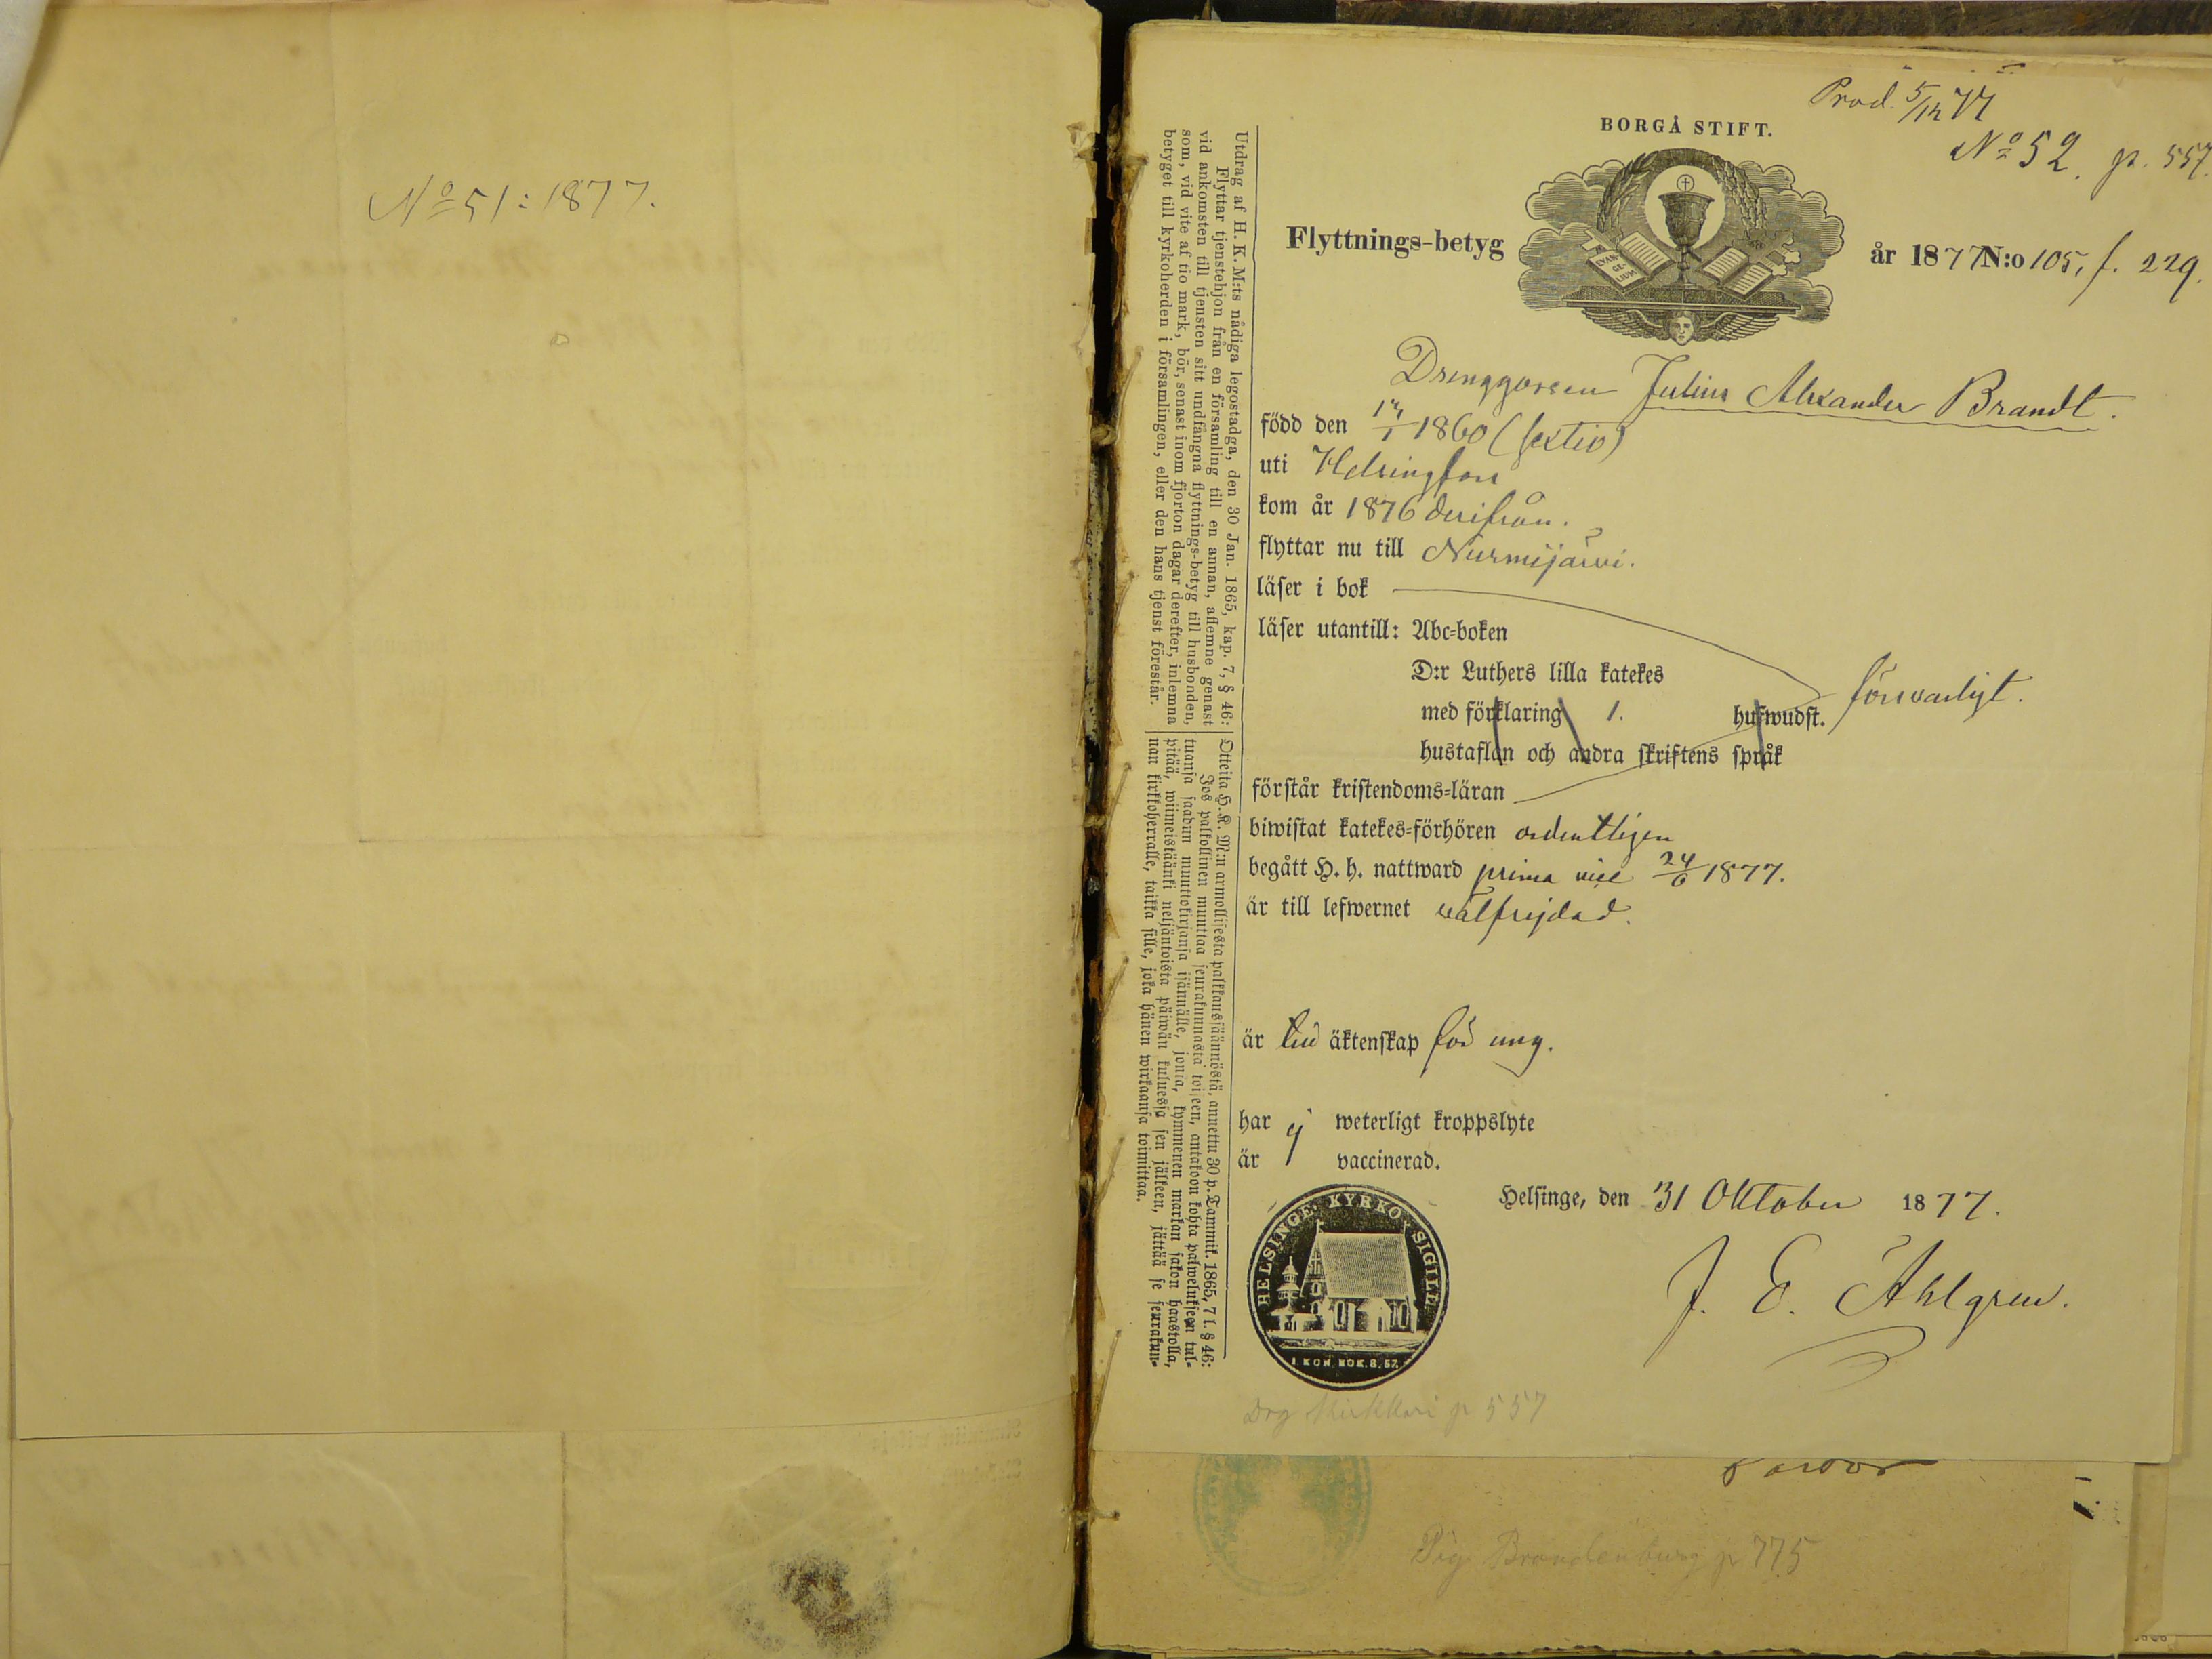 No 51: 1877.
Prod. 5/12 77
No 52. p. 557.
BORGÅ STIFT.
EVAN-
GE-
LIUM
Flyttnings-betyg
år 1877 N:o 105, f. 229.
Drenggossen Julius Alexander Brandt.
född den 14/1 1860 (sextio)
uti Helsingfors
kom år 1876 derifrån.
flyttar nu till Nurmijärvi.
läser i bok
läser utantill: Abc-boken
D:r Luthers lilla katekes
med förklaring 1. hufwudst.
försvarligt.
hustaflan och andra skriftens språk
förstår kristendoms-läran
biwistat katekes-förhören ordentligen
begått H. h. nattward prima vice 24/6 1877.
är till lefwernet välfrejdad.
är till äktenskap för ung.
har ej weterligt kroppslyte
är vaccinerad.
Helsinge, den 31 Oktober 1877.
J. E. Ahlgren.
HELSINGE KYRKO SIGILL
1. KON. BOK. 8, 57.
Drg Kirkkari p 557
Utdrag af H. K. M:ts nådiga legostadga, den 30 Jan. 1865, kap. 7, § 46:
Flyttar tjenstehjon från en församling till en annan, aflemne genast
vid ankomsten till tjensten sitt undfångna flyttnings-betyg till husbonden,
som, vid vite af tio mark, bör, senast inom fjorton dagar derefter, inlemna
betyget till kyrkoherden i församlingen, eller den hans tjenst förestår.
Otteita H. K. M:n armollisesta palkkaussäännöstä, annettu 30 p. Tammik. 1865, 7 l. § 46:
Jos palkollinen muuttaa seurakunnasta toiseen, antakoon kohta palwelukseen tul-
tuansa saadun muuttokirjansa isännälle, jonka, kymmenen markan sakon haastolla,
pitää, wiimeistäänki neljäntoista päiwän kuluessa sen jälkeen, jättää se seurakun-
nan kirkkoherralle, taikka sille, joka hänen wirkaansa toimittaa.
Pig. Brandenburg p 775